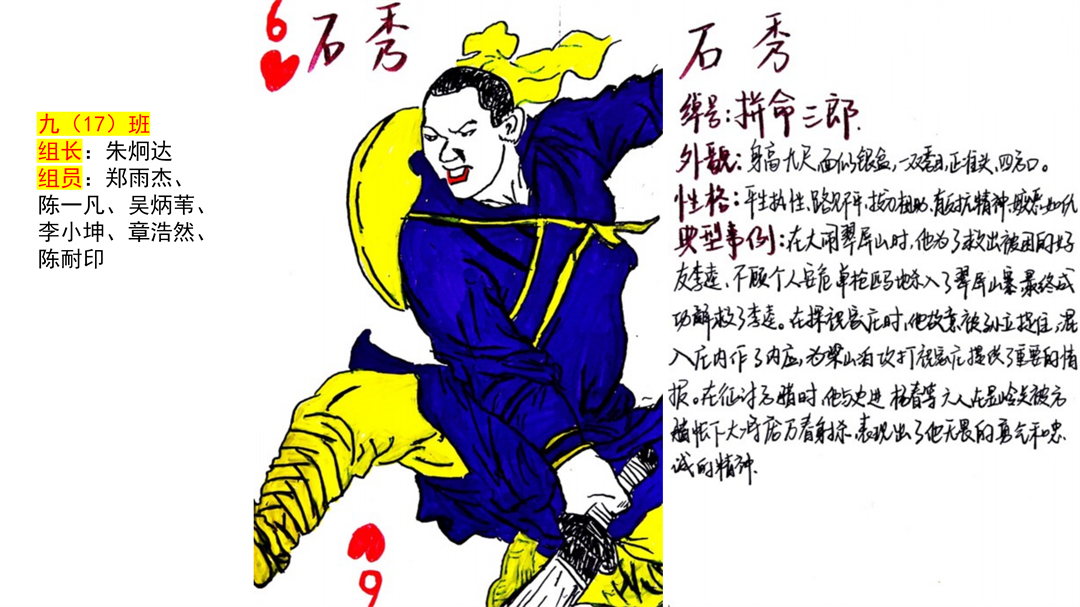 九（17）班
组长：朱炯达
组员：郑雨杰、
陈一凡、吴炳苇、
李小坤、章浩然、
陈耐印
6
石秀
6
石秀
绰号：拼命三郎.
外貌：身高九尺,面似银盆,一双,正准头,四方口。
性格：平生热性、路见不平,拔刀相助,有反抗精神,疾恶如仇
典型事例：在大闹翠屏山时,他为了救出被困的好
友李逵、不顾个人安危单枪匹马地杀入了翠屏山寨最终成
功解救了李逵。在探祝家庄时,他故意被孙立捉住,混
入庄内作了内应,为梁山泊攻打祝家庄提供了重要的情
报。在征讨方腊时,他与史进杨春等六人在昱岭关被方
腊帐下大将庞万春射杀,表现出了他无畏的勇气和忠
诚的精神.